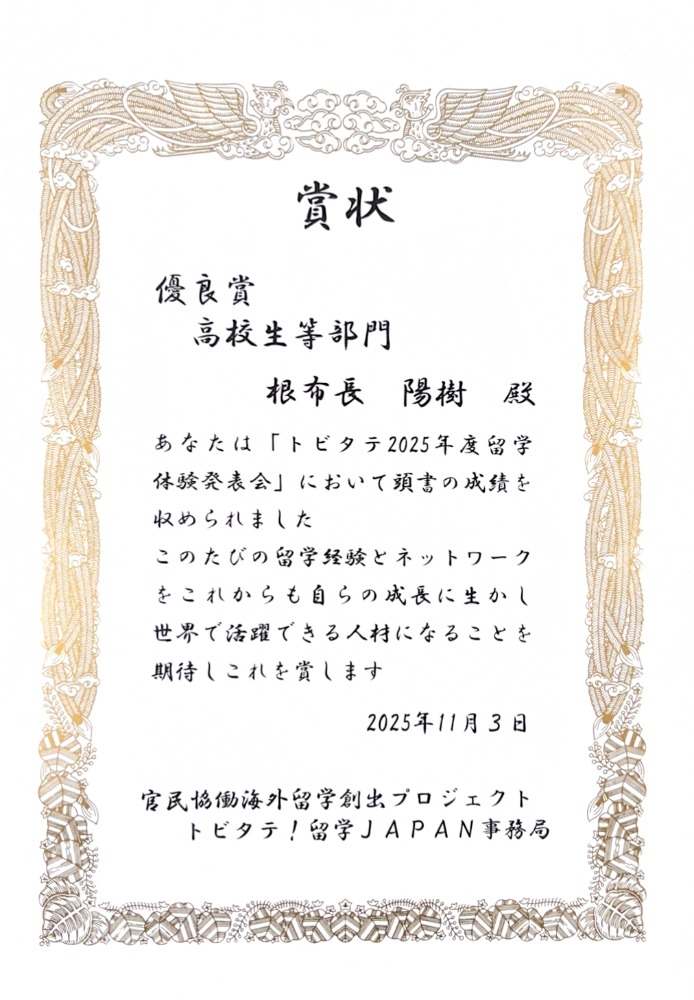 賞状
優良賞
高校生等部門
根布長　陽樹　殿
あなたは「トビタテ2025年度留学
体験発表会」において頭書の成績を
収められました
このたびの留学経験とネットワーク
をこれからも自らの成長に生かし
世界で活躍できる人材になることを
期待しこれを賞します
2025年11月３日
官民協働海外留学創出プロジェクト
トビタテ！留学ＪＡＰＡＮ事務局